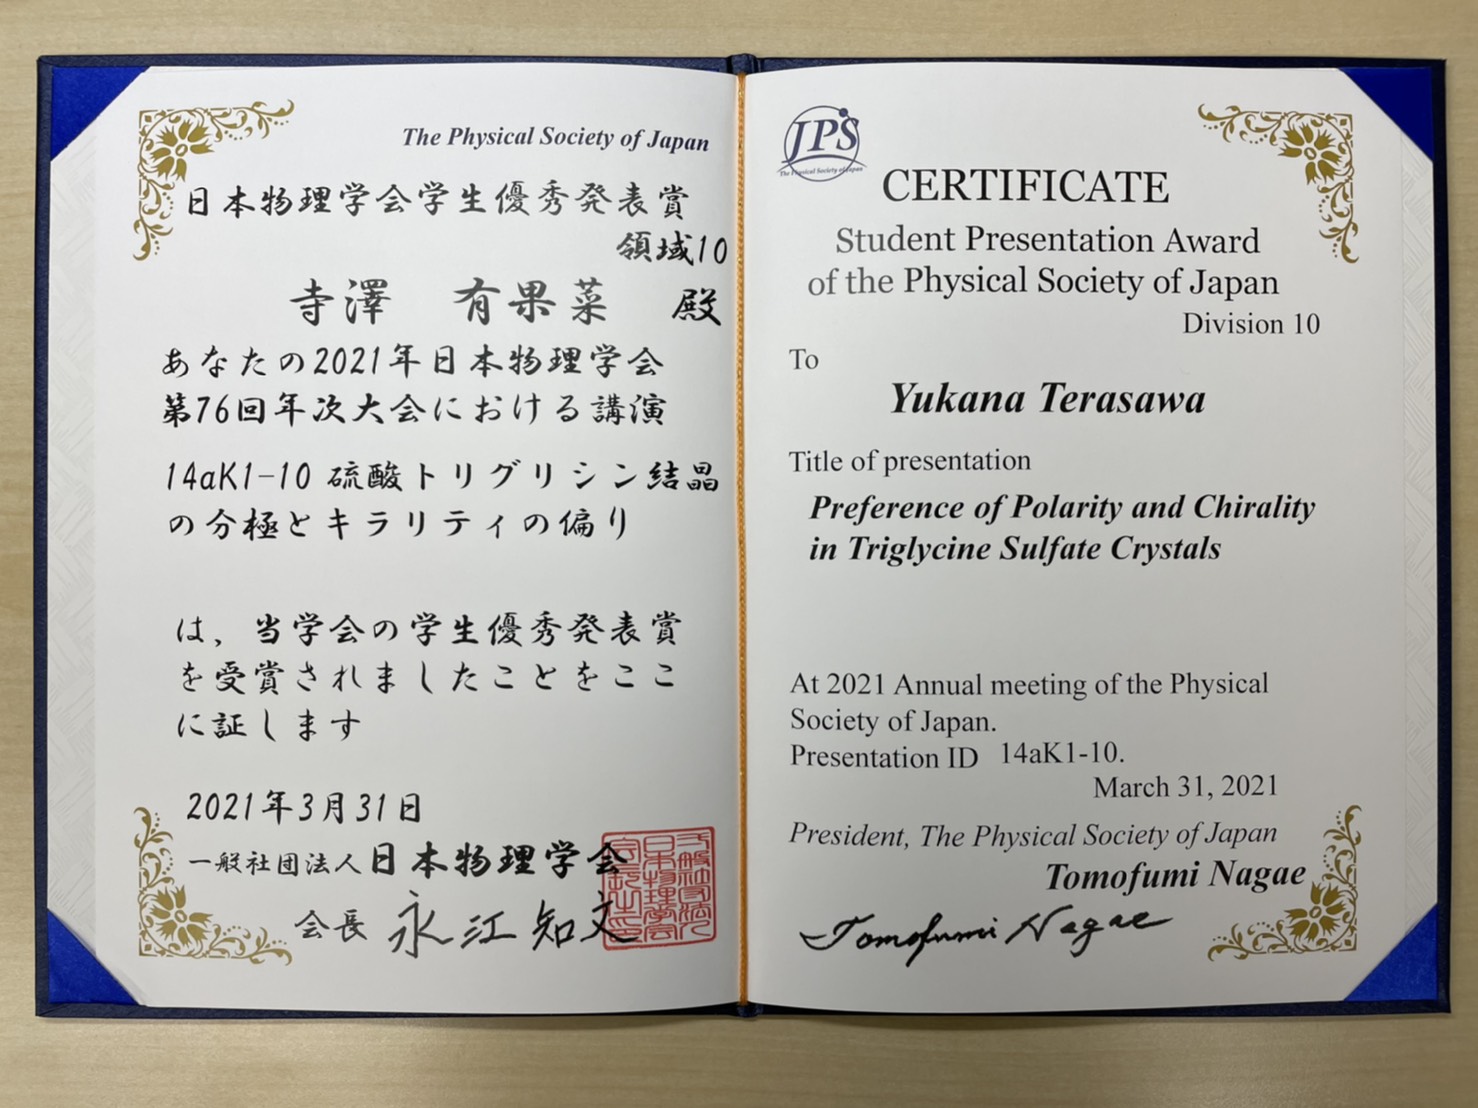 The Physical Society of Japan
日本物理学会学生優秀発表賞
領域10
寺澤 有果菜 殿
あなたの2021年日本物理学会
第76回年次大会における講演
14aK1-10 硫酸トリグリシン結晶
の分極とキラリティの偏り
は,当学会の学生優秀発表賞
を受賞されましたことをここ
に証します
2021年3月31日
一般社団法人日本物理学会
会長 永江知文
JPS
The Physical Society of Japan
CERTIFICATE
Student Presentation Award
of the Physical Society of Japan
Division 10
To
Yukana Terasawa
Title of presentation
Preference of Polarity and Chirality
in Triglycine Sulfate Crystals
At 2021 Annual meeting of the Physical
Society of Japan.
Presentation ID 14aK1-10.
March 31, 2021
President, The Physical Society of Japan
Tomofumi Nagae
Tomofumi Nagae